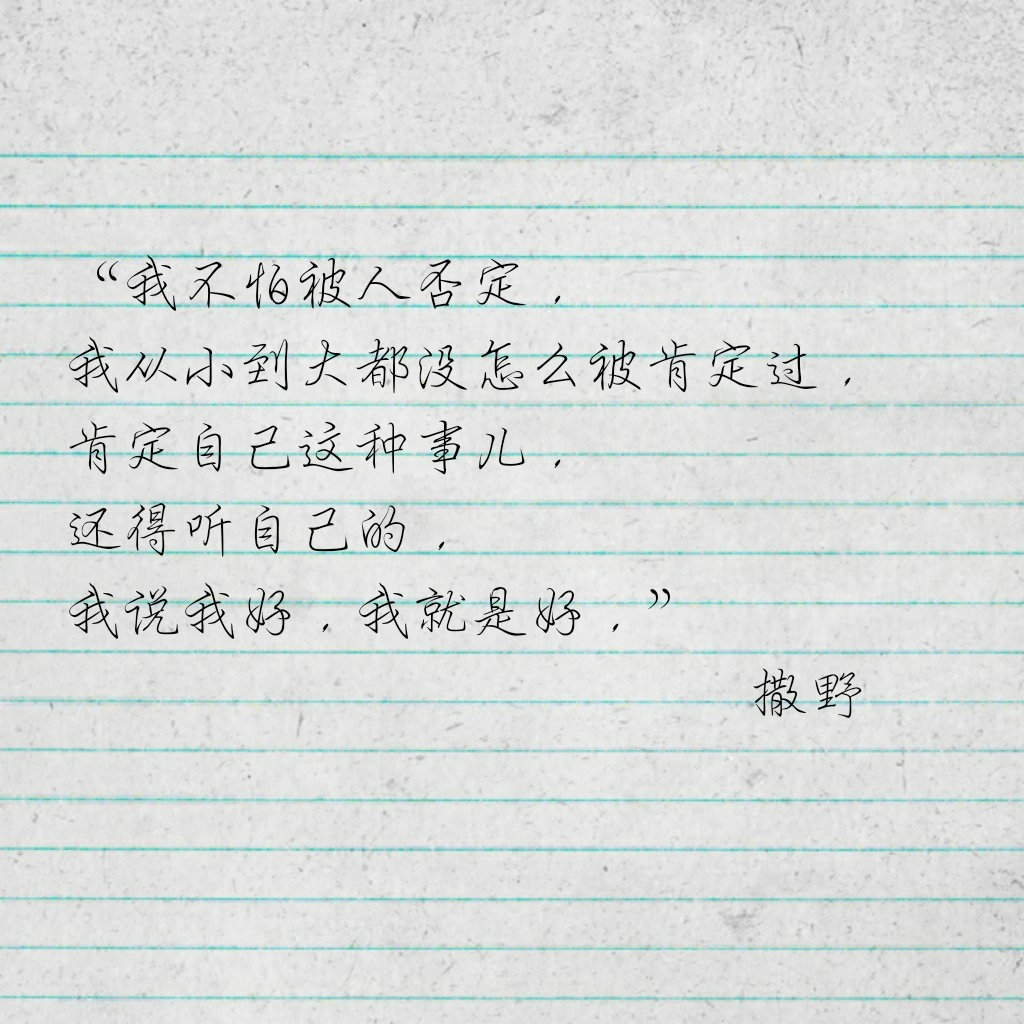 “我不怕被人否定，
我从小到大都没怎么被肯定过，
肯定自己这种事儿，
还得听自己的，
我说我好，我就是好，”
撒野